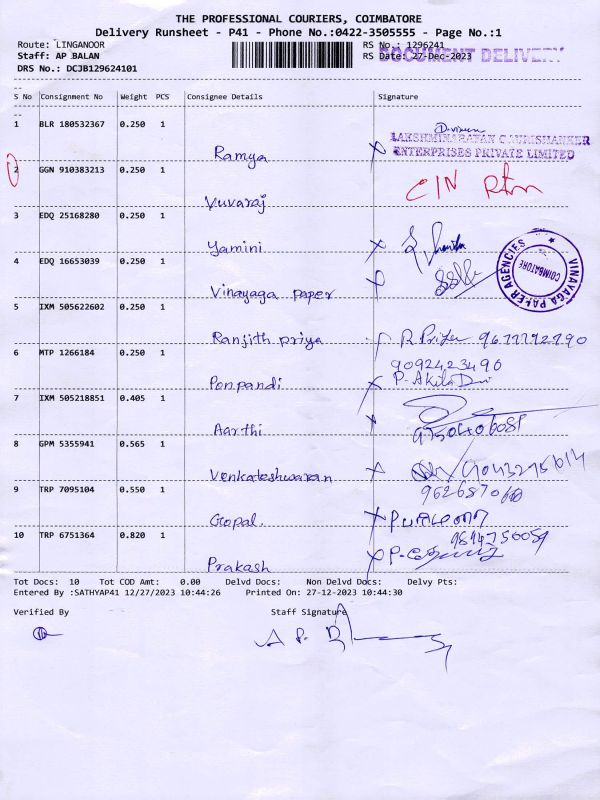 THE PROFESSIONAL COURIERS, COIMBATORE
Delivery Runsheet - P41 - Phone No.:0422-3505555 - Page No.:1
Route: LINGANOOR RS No.: 1296241
Staff: AP BALAN RS Date: 27-Dec-2023 DOCUMENT DELIVERY
DRS No.: DCJB129624101
S No Consignment No Weight PCS Consignee Details Signature
1 BLR 180532367 0.250 1
Ramya
LAKSHMINARAYAN GOURISHANKER
ENTERPRISES PRIVATE LIMITED
2 GGN 910383213 0.250 1
Yuvaraj C/N Rtn
3 EDQ 25168280 0.250 1
Yamini
4 EDQ 16653039 0.250 1
Vinayaga paper
VINAYAGA PAPER AGENCIES
COIMBATORE
5 IXM 505622602 0.250 1
Ranjith priya
6 MTP 1266184 0.250 1
Ponpandi
9092423490
P. Akila Devi
7 IXM 505218851 0.405 1
Aarthi
8 GPM 5355941 0.565 1
Venkateshwaran
9 TRP 7095104 0.550 1
Gopal.
10 TRP 6751364 0.820 1
Prakash
Tot Docs: 10 Tot COD Amt: 0.00 Delvd Docs: Non Delvd Docs: Delvy Pts:
Entered By :SATHYAP41 12/27/2023 10:44:26 Printed On: 27-12-2023 10:44:30
Verified By Staff Signature